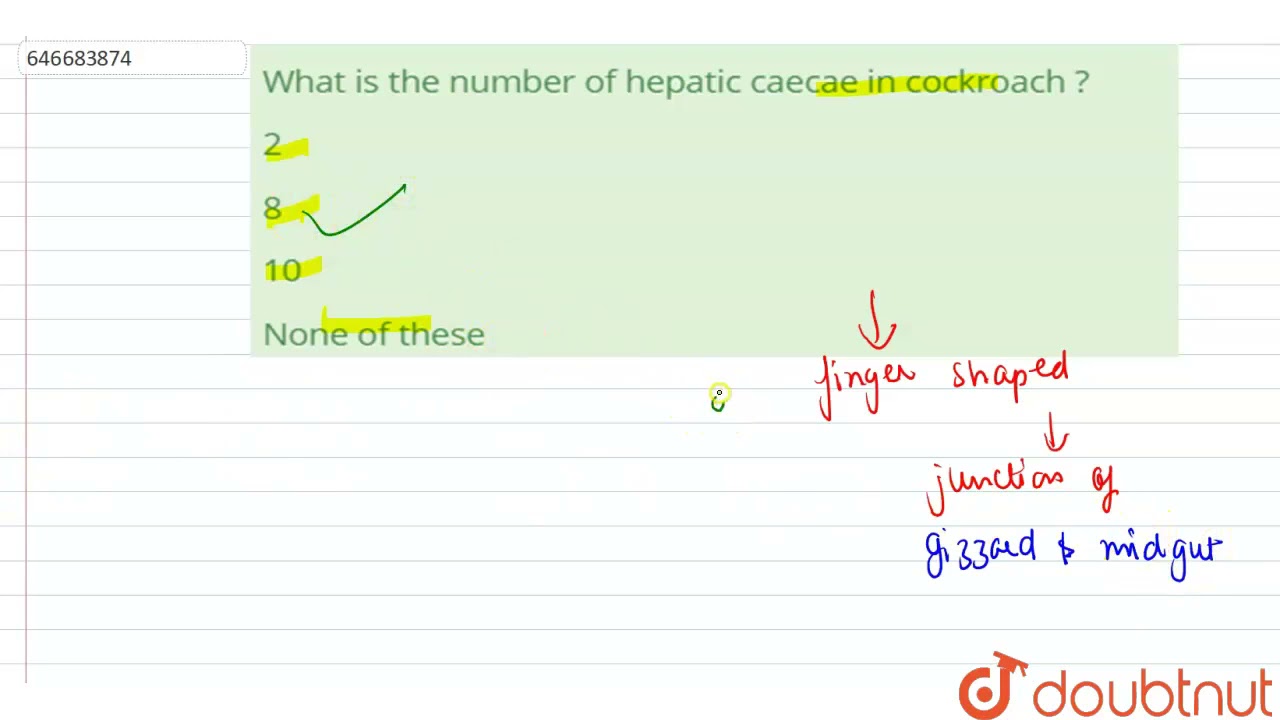 646683874
What is the number of hepatic caecae in cockroach ?
2
8
10
None of these
finger shaped
junction of
gizzard & midgut
doubtnut